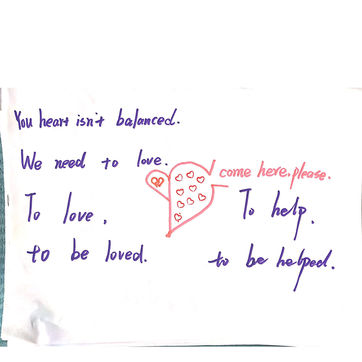 You heart isn't balanced.
We need to love.
come here.please.
To love,
To help,
to be loved.
to be helped.